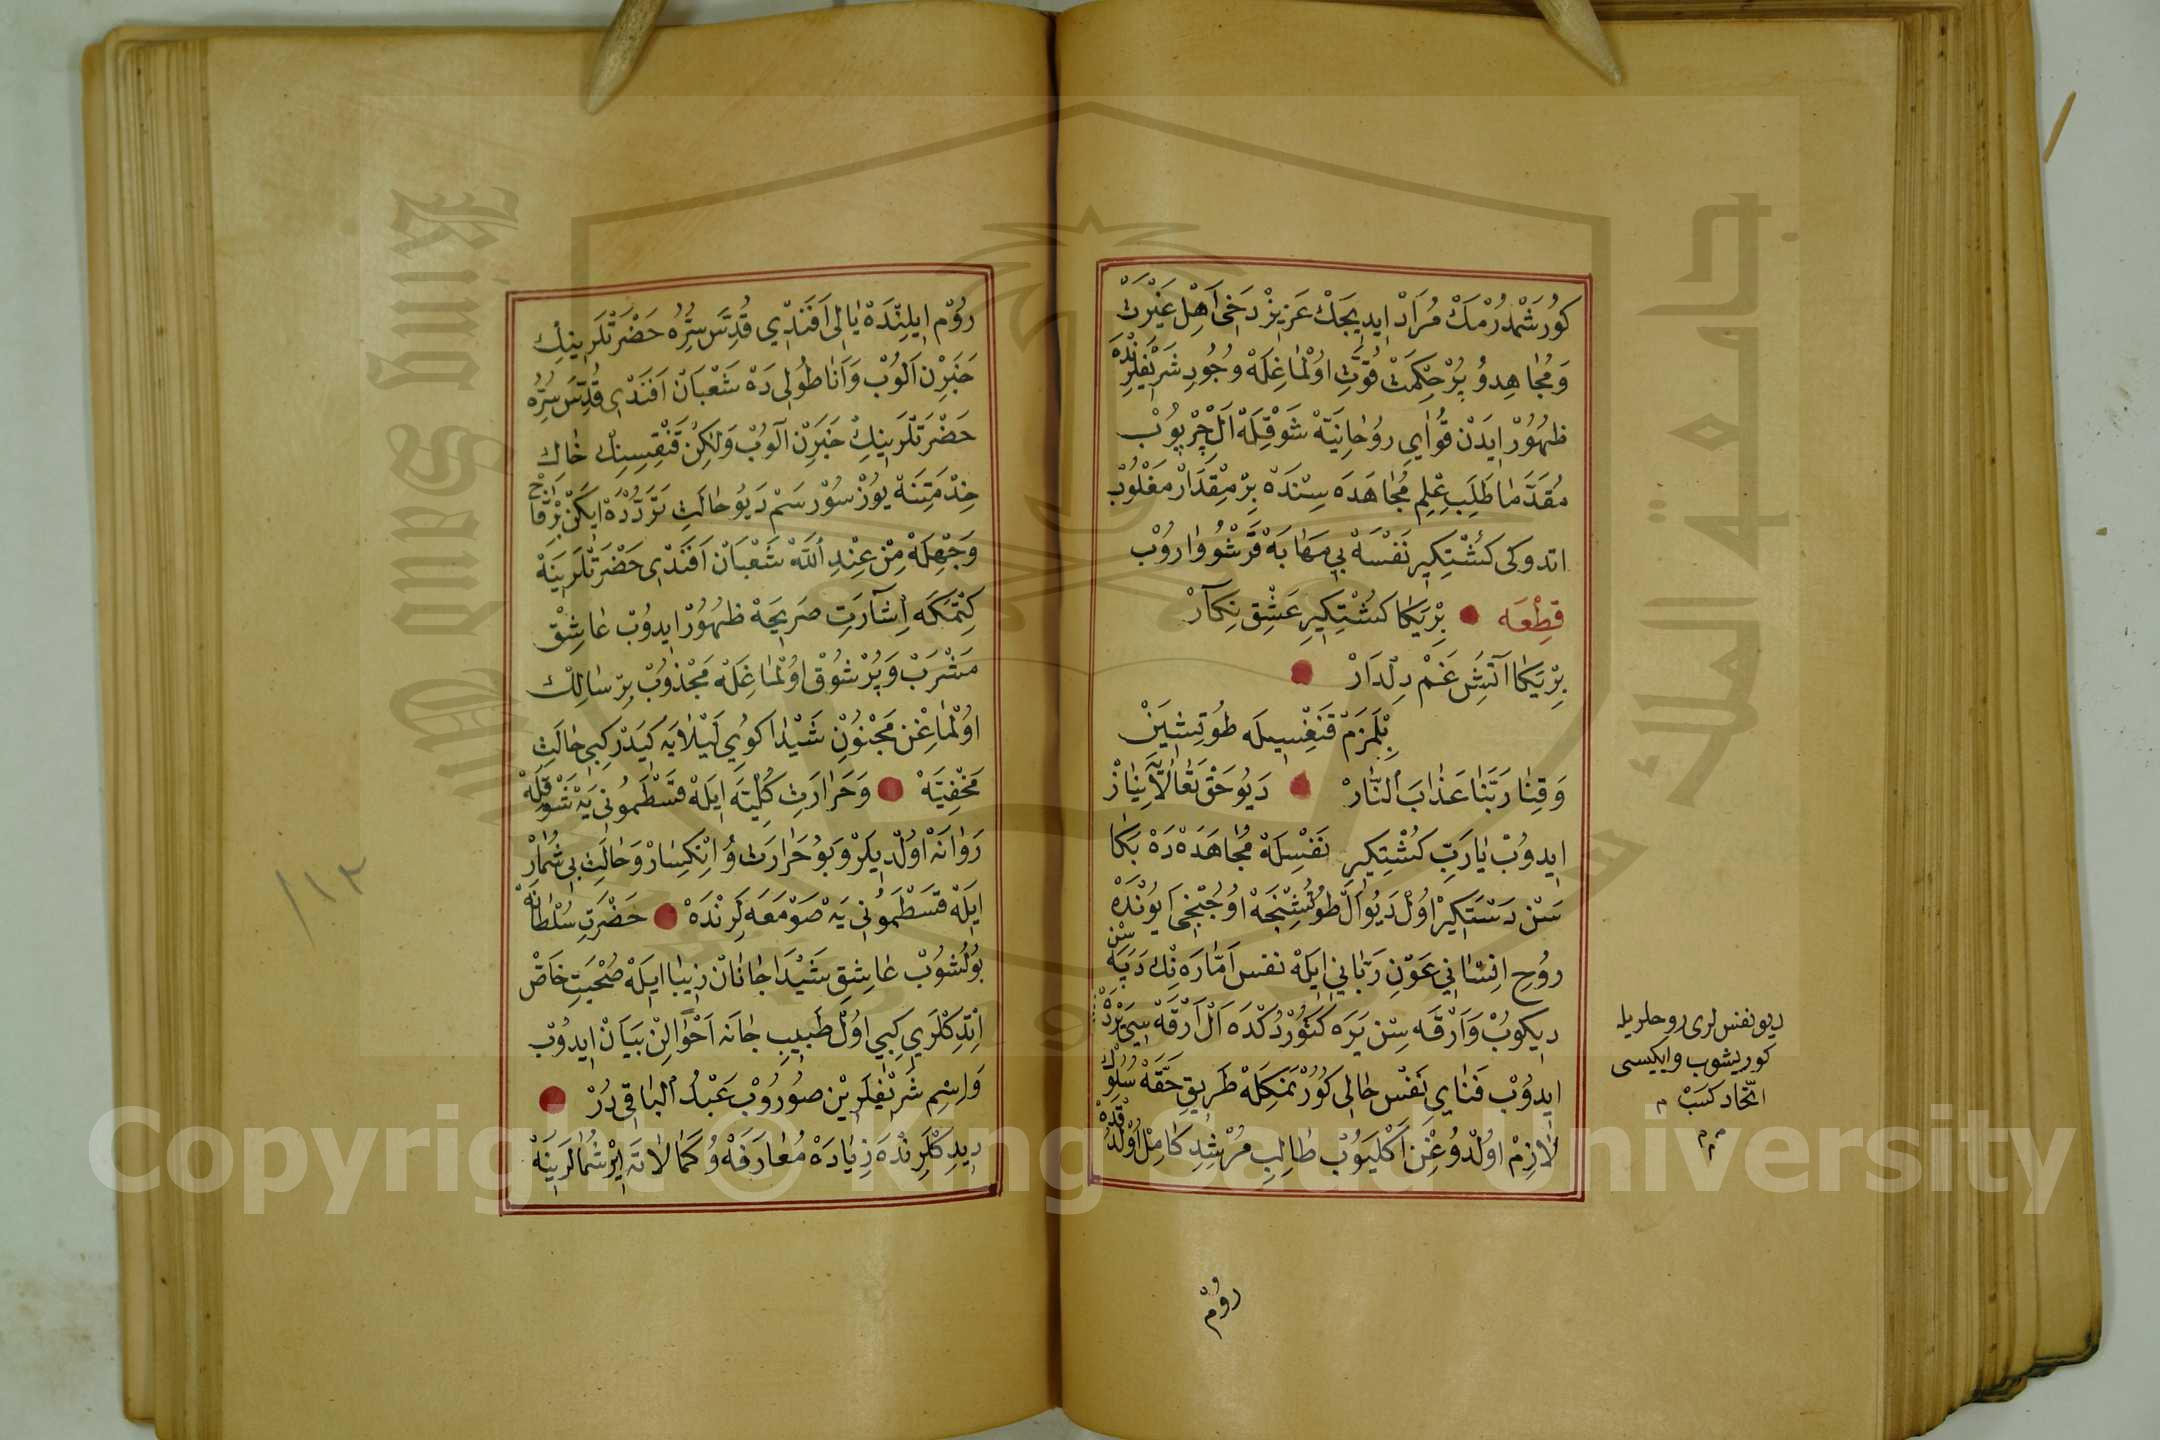 كُورَشْمَدُرْمَكْ مُرَادْ اِيدِيجَكْ عَزِيزْ دَخِى اَهْلِ غَيْرَتْ
وَمُجَاهِدِ وُ پُرْ حِكْمَتْ قُوَّتِ اوُلْمَاغِلَهْ وُجُودِ شَرِيْفْلَرِنْدَهْ
ظُهُورْ اِيدَنْ قُوَايِ رُوُحَانِيَّهْ شَوْقِلَهْ اَلْ چِرْپُوبْ
مُقَدَّمَا طَلَبِ عِلِمِ مُجَاهَدَه سِنْدَهْ بِرْ مِقْدَارْ مَغْلُوبْ
اتدوكى كُشْتِكِيرِ نَفْسَهْ بِي مَهَابَهْ قَرْشُو وَارُوبْ
قِطْعَه بِرْيَكَا كُشْتِكِيرِ عَشْقِ نِكَارْ
بِرْيَكَا آتَشِ غَمِ دِلْدَارْ
بِلْمَزَمْ قَنْغِيسِلَه طُوتِشَيِنْ
وَقِنَا رَبَّنَا عَذَابَ النَّارْ دَيُو حَقْ تَعَالَايَه نِيَازْ
اِيدُوبْ يَارَبِّ كُشْتِكِيرِ نَفْسِلَهْ مُجَاهَدَهْ دَهْ بَكَا
سَنْ دَسْتَكِيرْ اوُلْ دَيُو اَلْ طُوتُشِنْجَهْ اوُچُنْجِى اَيوُنْدَهْ
رُوحِ اِنْسَانِي عَوْنِ رَبَّانِي اِيلَهْ نفس اَمَّارَه نِكْ دَپَه سِنْ
دِيكُوبْ وَآرْقَه سِنْ يَرَه كَتُورْدُكْدَه اَلْ آرْقَه سِى يَرْدَنْ
اِيدُوبْ فَنَايِ نَفْسْ حَالِى كُورُنْمَكِلَهْ طَرِيقِ حَقَّهْ سُلُوكْ
لَازِمْ اوُلْدُوغِنْ اَكْلَيُوبْ طَالِبِ مُرْشِدِ كَامِلْ اوُلْدُقْدَهْ
ديو نفس لرى روحلريله
كوريشوب وايكيسى
اتّحاد كسبْ م
م م م
رُومْ
رُومْ اِيلِنْدَهْ يَالِى اَفَنْدِي قُدِّسَ سِرُّهُ حَضْرَتْلَرِينِكْ
خَبَرِنْ آلُوبْ وَآنَاطُولِى دَهْ شَعْبَانْ اَفَنْدِى قُدِّسَ سِرُّهُ
حَضْرَتْلَرِينِكْ خَبَرِنْ آلُوبْ وَلٰكِنْ قَنْقِيسِنِكْ خَاكِ
خِدْمَتِنَهْ يُوزْ سُورْسَمْ دَيُو حَالَتِ تَرَدُّدْدَهْ اِيكَنْ بِرْقَاچْ
وَجْهِلَهْ مِنْ عِنْدِ اللّٰهْ شَعْبَانْ اَفَنْدِى حَضْرَتْلَرِينَهْ
كِتْمَكَه اِشَارَتِ صَرِيحَهْ ظُهُورْ اِيدُوبْ عَاشِقْ
مَشْرَبْ وَپُرْشَوْقْ اوُلْمَاغِلَهْ مَجْذُوبْ بِرْ سَالِكْ
اوُلْمَاغِنْ مَجْنُونِ شَيْدَا كُويِ لَيْلَايَه كِيدَرْ كِبِى حَالَتِ
مَخْفِيَّهْ وَحَرَارَتِ كُلِّيَّه اِيلَهْ قَسْطَمُونِى يَهْ شَوْقِلَهْ
رَوَانَهْ اوُلْدِيلَرْ وَبُو حَرَارَتْ وُ اِنْكِسَارْ وَحَالَتِ بِى شُمَارْ
اِيلَهْ قَسْطَمُونِى يَهْ صَوْمَعَه لَرِنْدَهْ حَضْرَتِ سُلْطَانَهْ
بُولُشُوبْ عَاشِقِ شَيْدَا جَانَانْ زِيبَا اِيلَهْ صُحْبَتِ خَاصْ
اِتْدِكْلَرِي كِبِي اوُلْ طَبِيبِ جَانَه اَحْوَالِنْ بَيَانْ اِيدُوبْ
وَاِسْمِ شَرِيفْلَرِيْنْ صُورُوبْ عَبْدُ الْبَاقِى دُرْ
دِيدِكْلَرِنْدَه زِيَادَهْ مُعَارَفَهْ وُ كَمَالَاتَه اِيرْشُمَالَرِينَهْ
١١٢
Copyright © King Saud University
King Saud University
جامعة الملك سعود